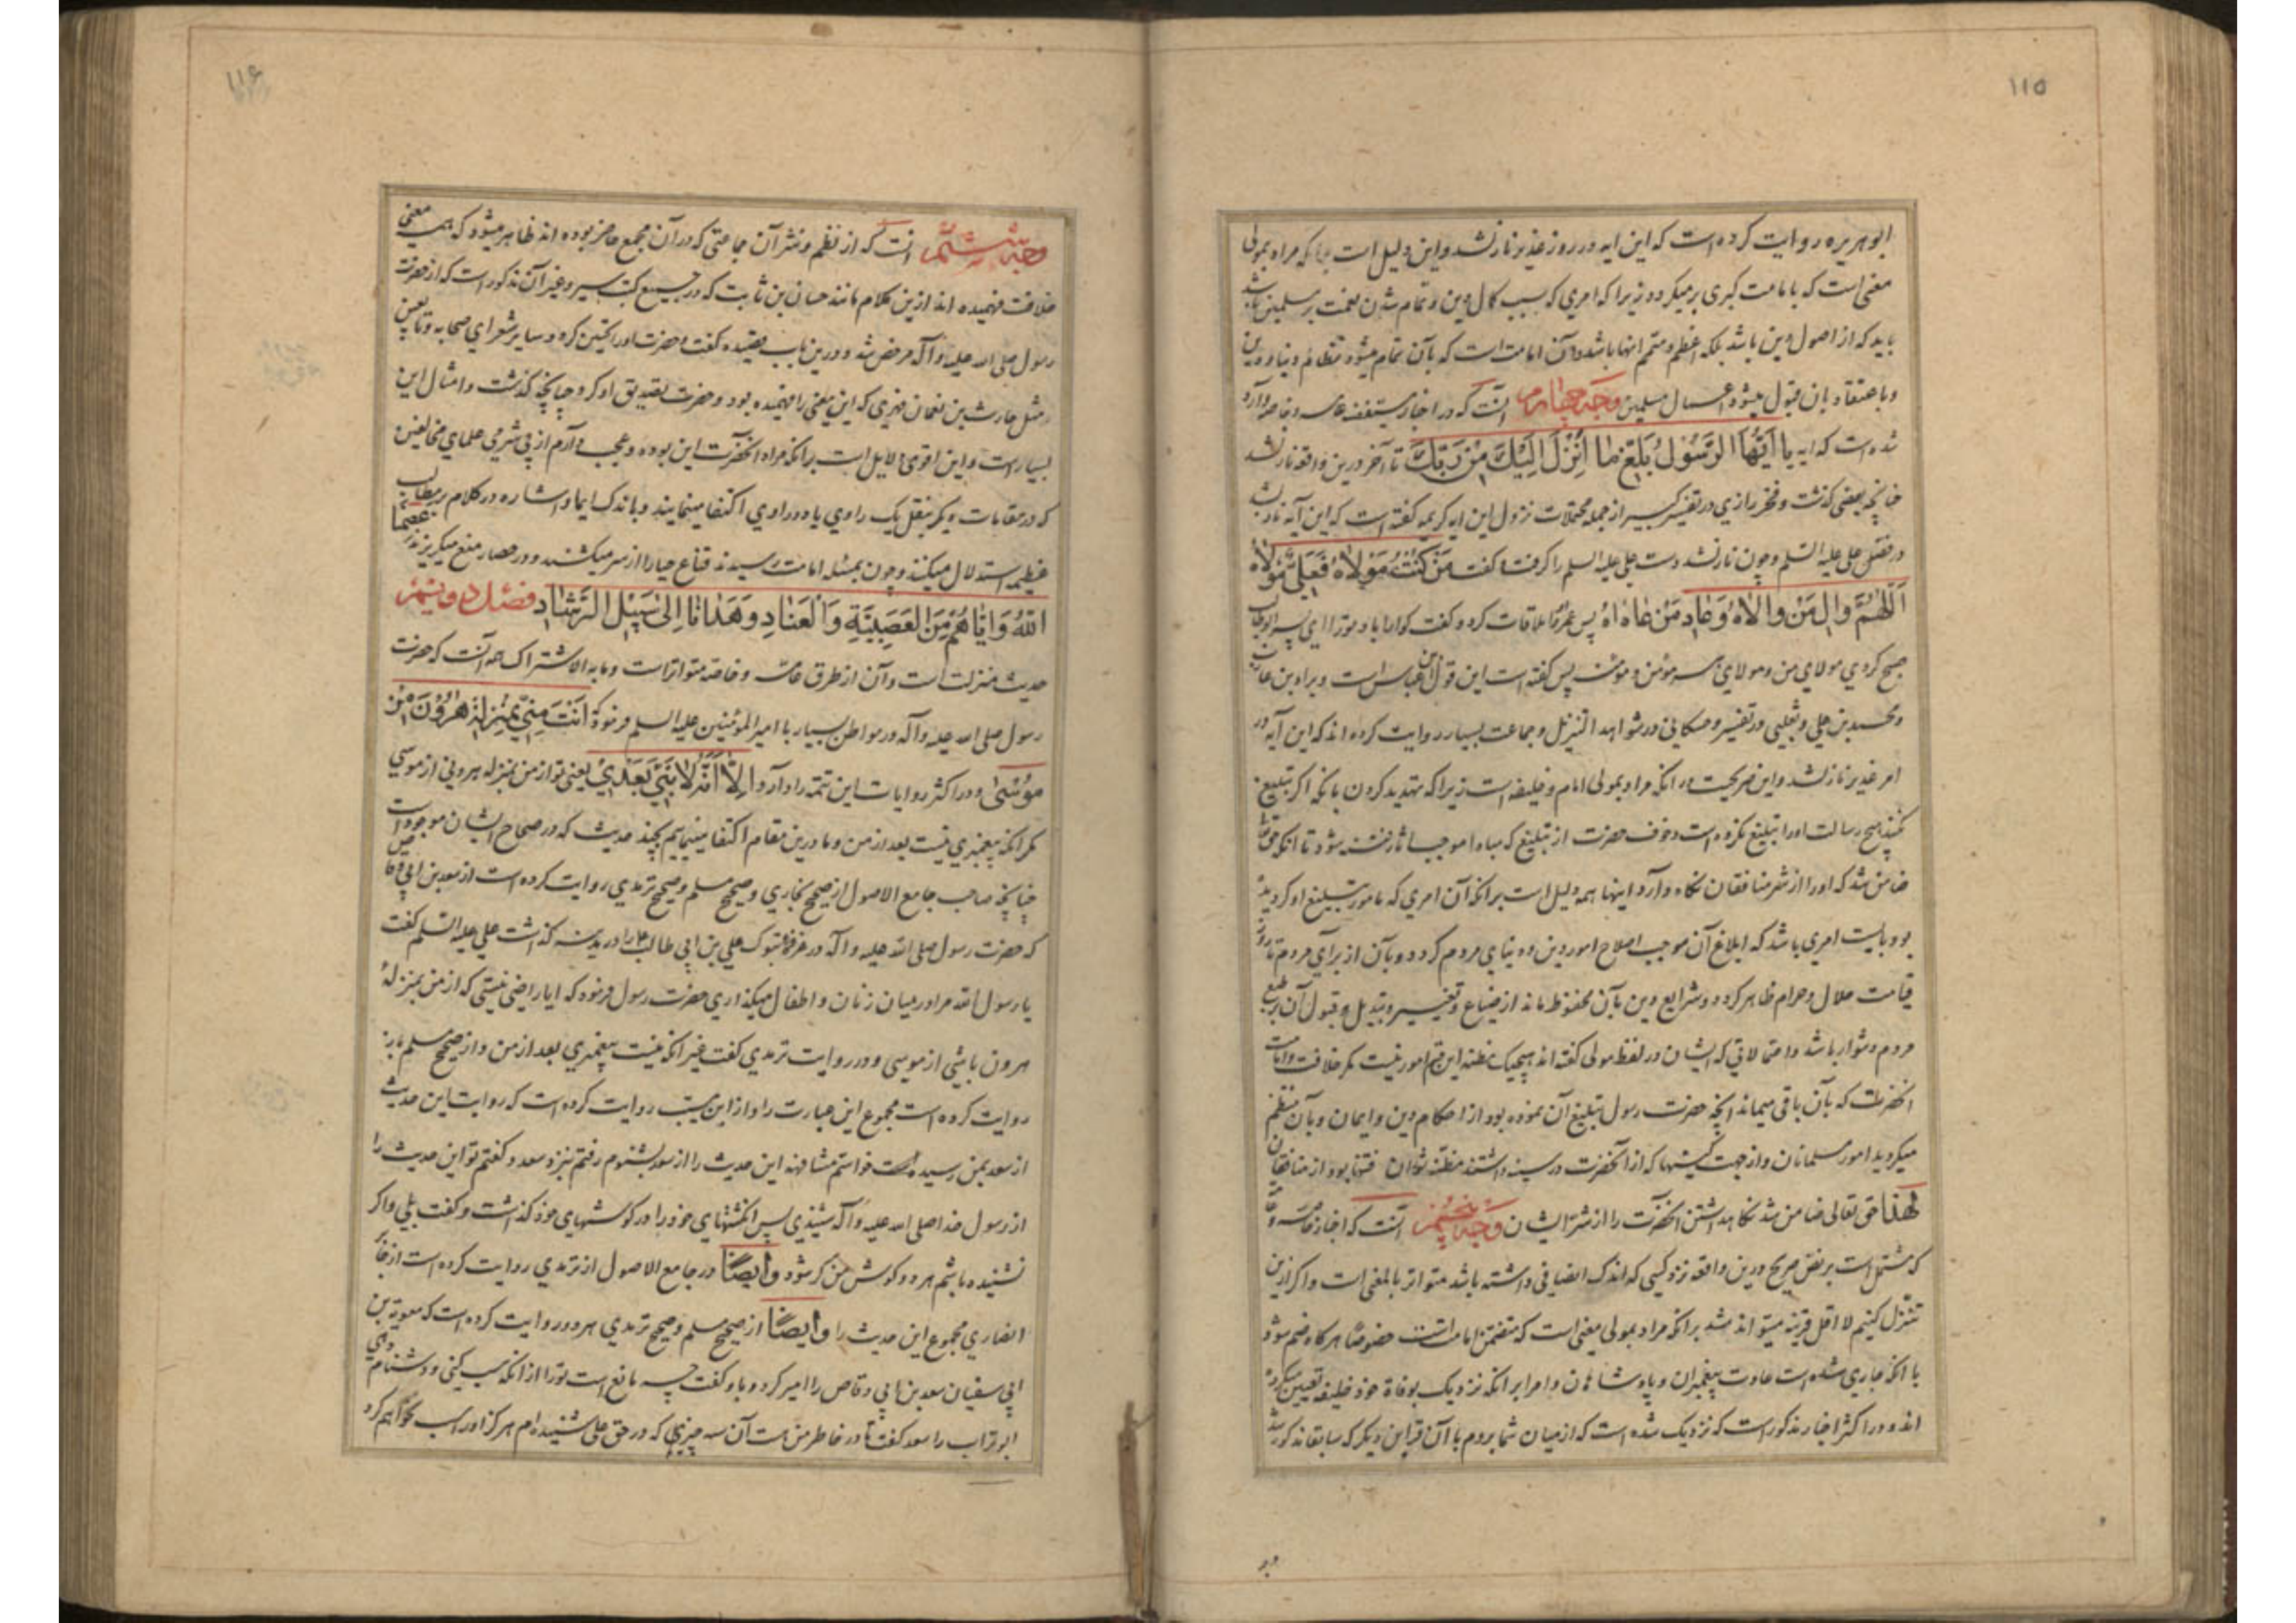 ۱۱۵
ابوهریره روایت کرده است که این آیه در روز غدیر نازل شد و این دلیل است بر آنکه مراد بمولی
معنی است که بامامت کبری برمیگردد زیرا که امری که سبب کمال دین و تمام شدن نعمت بر مسلمین باشد
باید که از اصول دین باشد بلکه اعظم و متمم آنها باشد و آن امامت است که بآن تمام میشود نظام دنیا و دین
و باعتقاد بآن قبول میشود اعمال مسلمین وجه چهارم آنست که در اخبار مستفیضه عامه و خاصه وارد
شده است که آیه یا أَیُّهَا الرَّسُولُ بَلِّغْ مَا أُنْزِلَ إِلَیْكَ مِنْ رَبِّكَ تا آخر درین واقعه نازل شد
چنانچه بعضی گذشت و فخر رازی در تفسیر کبیر از جمله محتملات نزول این آیه کریمه گفته است که این آیه نازل شد
در فضل علی علیه السلم و چون نازل شد دست علی علیه السلم را گرفت و گفت مَنْ کُنْتُ مَوْلاهُ فَعَلِیٌّ مَوْلاهُ
اَللّهُمَّ والِ مَنْ والاهُ وَعادِ مَنْ عاداهُ پس عمر او را ملاقات کرد و گفت گوارا باد تو را ای پسر ابوطالب
صبح کردی مولای من و مولای هر مؤمن و مؤمنه پس گفته است این قول ابن عباس است و براء بن عازب
و محمد بن علی و ثعلبی در تفسیر و حسکانی در شواهد التنزیل و جماعت بسیار روایت کرده اند که این آیه در
امر غدیر نازل شد و این صریحست در آنکه مراد بمولی امام و خلیفه است زیرا که تهدید کردن بآنکه اگر تبلیغ
نکنی هیچ رسالت او را تبلیغ نکرده است و خوف حضرت از تبلیغ که مبادا موجب اثاره فتنه شود تا آنکه حق تعالی
ضامن شد که او را از شر منافقان نگاه دارد اینها همه دلیل است بر آنکه آن امری که مامور بتبلیغ او گردیده
بود بایست امری باشد که ابلاغ آن موجب اصلاح امور دین و دنیای مردم گردد و بآن از برای مردم تا روز
قیامت حلال و حرام ظاهر گردد و شرایع دین بآن محفوظ ماند از ضیاع و تغییر و تبدیل و قبول آن بر طبع
مردم دشوار باشد و احتمالاتی که ایشان در لفظ مولی گفته اند هیچیک مظنه این قسم امور نیست مگر خلافت و امامت
آنحضرت که بآن باقی میماند آنچه حضرت رسول تبلیغ آن نموده بود از احکام دین و ایمان و بآن منتظم
میگردید امور مسلمانان و از جهت کینها که از آنحضرت در سینه داشتند مظنه ثوران فتنها بود از منافقان
لهذا حق تعالی ضامن شد نگاهداشتن آنحضرت را از شر ایشان وجه پنجم آنست که اخبار خاصه و عامه
که مشتمل است بر نص صریح درین واقعه نزد کسی که اندک انصافی داشته باشد متواتر بالمعنی است و اگر ازین
تنزل کنیم لا اقل قرینه میتواند شد بر آنکه مراد بمولی معنی است که متضمن امامت است خصوصا هرگاه ضم شود
با آنکه جاری شده است عادت پیغمبران و پادشاهان و امرا بر آنکه نزدیک بوفاة خود خلیفه تعیین میکرده
اند و در اکثر اخبار مذکور است که نزدیک شده است که از میان شما بروم با آن قراین دیگر که سابقا مذکور شد
وجه
۱۱۶
وجه ششم آنست که از نظم و نثر آن جماعتی که در آن مجمع حاضر بوده اند ظاهر میشود که همه معنی
خلافت فهمیده اند ازین کلام مانند حسان بن ثابت که در جمیع کتب سیر و غیر آن مذکور است که از حضرت
رسول صلی الله علیه و آله مرخص شد و درین باب قصیده گفت و حضرت او را تحسین کرد و سایر شعرای صحابه و تابعین
و مثل حارث بن نعمان فهری که این معنی را فهمیده بود و حضرت تصدیق او کرد چنانچه گذشت و امثال این
بسیار است و این اقوی دلایل است بر آنکه مراد آنحضرت این بوده و عجب دارم از بی شرمی علمای مخالفین
که در مقامات دیگر بنقل یک راوی یا دو راوی اکتفا مینمایند و باندک ایما و اشاره در کلام بر مطالب
عظیمه استدلال میکنند و چون بمسئله امامت رسیدند قناع حیا را از سر میکشند و در حصار منع میگریزند عصمنا
اللهُ وَإِیّاهُمْ مِنَ العَصَبِیَّةِ وَالْعِنَادِ وَهَدَانَا إِلی سَبِیْلِ الرَّشَادِ فصل دویم
حدیث منزلت است و آن از طرق عامه و خاصه متواتر است و مابه الاشتراک همه آنست که حضرت
رسول صلی الله علیه و آله در مواطن بسیار با امیر المؤمنین علیه السلم فرمود که أَنْتَ مِنِّی بِمَنْزِلَةِ هرُوْنَ مِنْ
مُوْسی و در اکثر روایات این تتمه را دارد إِلاّ أَنَّهُ لا نَبِیَّ بَعْدِیْ یعنی تو از من بمنزله هرونی از موسی
مگر آنکه پیغمبری نیست بعد از من و ما درین مقام اکتفا مینمایم بچند حدیث که در صحاح ایشان موجود است
چنانچه صاحب جامع الاصول از صحیح بخاری و صحیح مسلم و صحیح ترمذی روایت کرده است از سعد بن ابی وقاص
که حضرت رسول صلی الله علیه و آله در غزوه تبوک علی بن ابی طالب را در مدینه گذاشت علی علیه السلم گفت
یا رسول الله مرا در میان زنان و اطفال میگذاری حضرت رسول فرمود که ایا راضی نیستی که از من بمنزلهٔ
هرون باشی از موسی و در روایت ترمذی گفت غیر آنکه نیست پیغمبری بعد از من و از صحیح مسلم باز
روایت کرده است مجموع این عبارت را و از ابن مسیب روایت کرده است که روایت این حدیث
از سعد بمن رسیده است خواستم مشافهه این حدیث را از سعد بشنوم رفتم بنزد سعد و گفتم تو این حدیث را
از رسول خدا صلی الله علیه و آله شنیدی پس انگشتهای خود را در گوشهای خود گذاشت و گفت بلی و اگر
نشنیده باشم هر دو گوش من کر شود و ایضًا در جامع الاصول از ترمذی روایت کرده است از جابر
انصاری مجموع این حدیث را و ایضًا از صحیح مسلم و صحیح ترمذی هر دو روایت کرده است که معویة بن
ابی سفیان سعد بن ابی وقاص را امیر کرد و باو گفت چه مانع است تو را از آنکه سب کنی و دشنام دهی
ابوتراب را سعد گفت تا در خاطر من هست آن سه چیزی که در حق علی شنیده ام هرگز او را سب نخواهم کرد